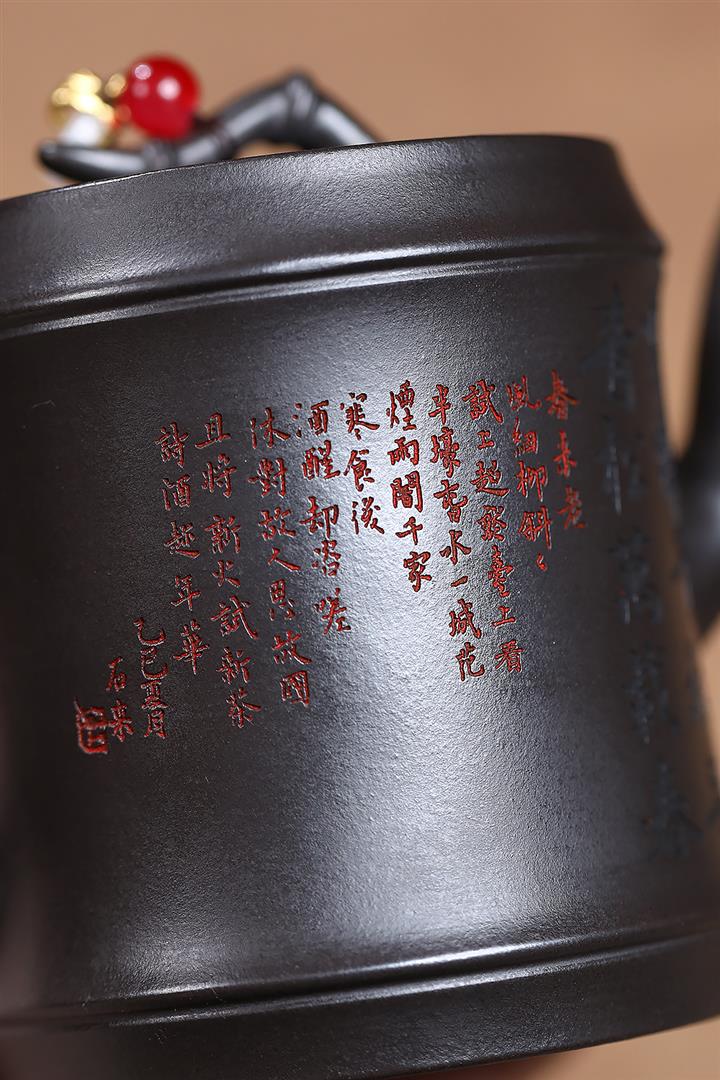 春未老
風細柳斜斜
試上超然臺上看
半壕春水一城花
煙雨闇千家
寒食後
酒醒却咨嗟
休對故人思故國
且將新火試新茶
詩酒趁年華
乙巳夏月
石泉